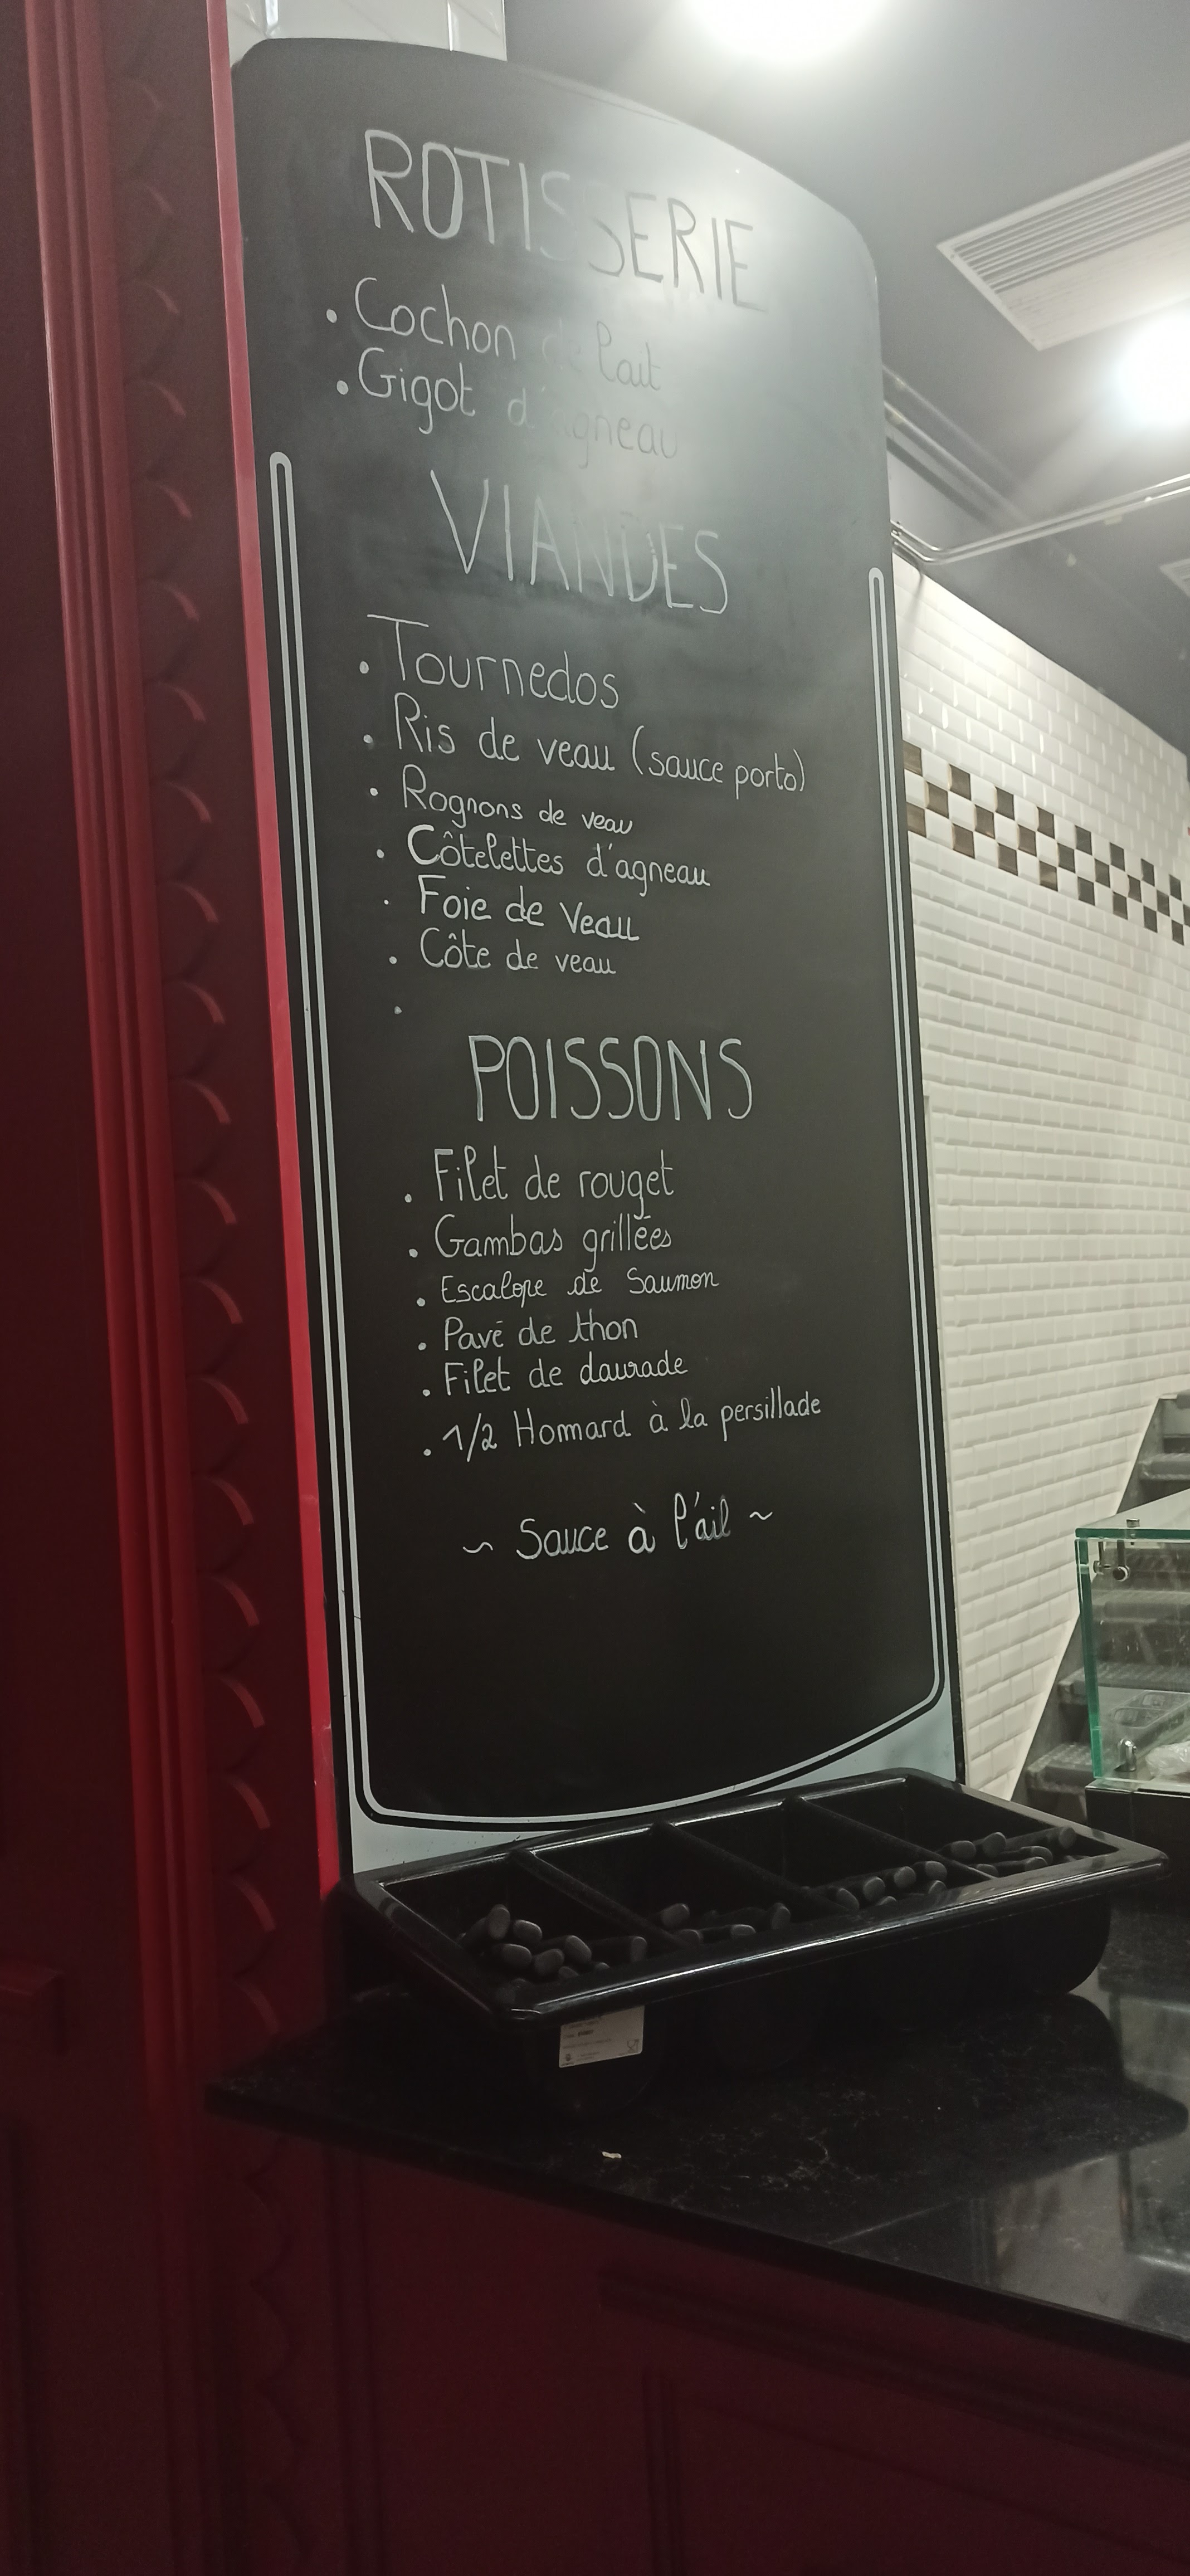 ROTISSERIE
. Cochon de lait
. Gigot d'agneau
VIANDES
. Tournedos
. Ris de veau (sauce porto)
. Rognons de veau
. Côtelettes d'agneau
. Foie de Veau
. Côte de veau
.
POISSONS
. Filet de rouget
. Gambas grillées
. Escalope de Saumon
. Pavé de thon
. Filet de daurade
. 1/2 Homard à la persillade
~ Sauce à l'ail ~